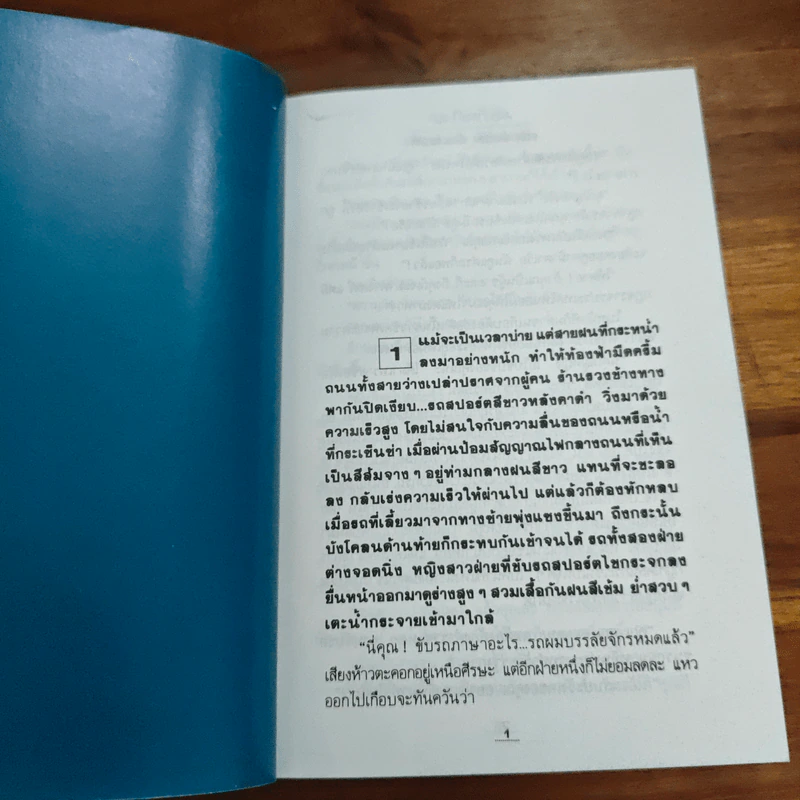 1
แม้จะเป็นเวลาบ่าย แต่สายฝนที่กระหน่ำ
ลงมาอย่างหนัก ทำให้ท้องฟ้ามืดครึ้ม
ถนนทั้งสายว่างเปล่าปราศจากผู้คน ร้านรวงข้างทาง
พากันปิดเงียบ...รถสปอร์ตสีขาวหลังคาดำ วิ่งมาด้วย
ความเร็วสูง โดยไม่สนใจกับความลื่นของถนนหรือน้ำ
ที่กระเซ็นซ่า เมื่อผ่านป้อมสัญญาณไฟกลางถนนที่เห็น
เป็นสีส้มจาง ๆ อยู่ท่ามกลางฝนสีขาว แทนที่จะชะลอ
ลง กลับเร่งความเร็วให้ผ่านไป แต่แล้วก็ต้องหักหลบ
เมื่อรถที่เลี้ยวมาจากทางซ้ายพุ่งแซงขึ้นมา ถึงกระนั้น
บังโคลนด้านท้ายก็กระทบกันเข้าจนได้ รถทั้งสองฝ่าย
ต่างจอดนิ่ง หญิงสาวฝ่ายที่ขับรถสปอร์ตไขกระจกลง
ยื่นหน้าออกมาดูร่างสูง ๆ สวมเสื้อกันฝนสีเข้ม ย่ำสวบ ๆ
เตะน้ำกระจายเข้ามาใกล้
“นี่คุณ ! ขับรถภาษาอะไร...รถผมบรรลัยจักรหมดแล้ว”
เสียงห้าวตะคอกอยู่เหนือศีรษะ แต่อีกฝ่ายหนึ่งก็ไม่ยอมลดละ แหว
ออกไปเกือบจะทันควันว่า
1